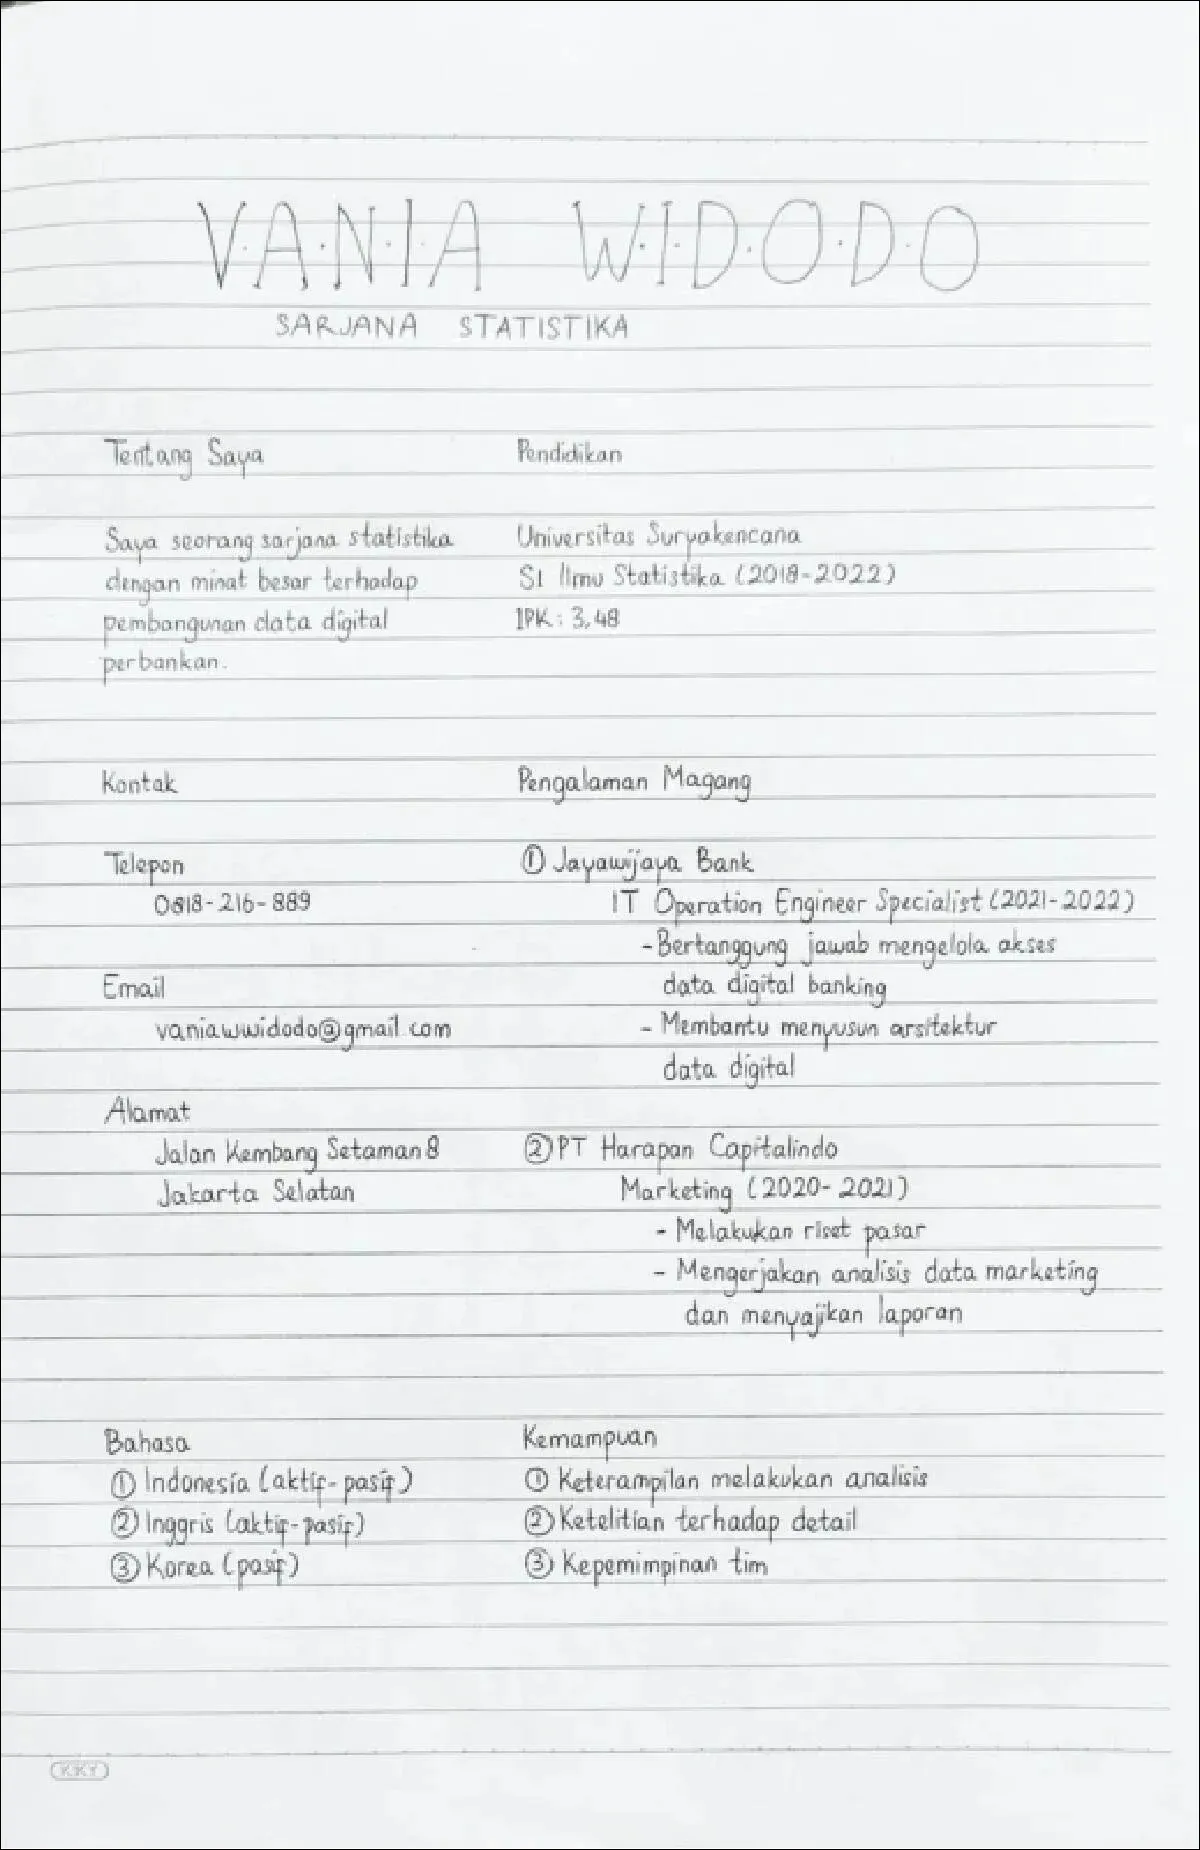 V.A.N.I.A W.I.D.O.D.O
SARJANA STATISTIKA
Tentang Saya
Saya seorang sarjana statistika
dengan minat besar terhadap
pembangunan data digital
perbankan.
Pendidikan
Universitas Suryakencana
S1 Ilmu Statistika (2018-2022)
IPK: 3,48
Kontak
Telepon
0818-216-889
Email
vaniawwidodo@gmail.com
Alamat
Jalan Kembang Setaman 8
Jakarta Selatan
Pengalaman Magang
① Jayawijaya Bank
IT Operation Engineer Specialist (2021-2022)
- Bertanggung jawab mengelola akses
data digital banking
- Membantu menyusun arsitektur
data digital
② PT Harapan Capitalindo
Marketing (2020-2021)
- Melakukan riset pasar
- Mengerjakan analisis data marketing
dan menyajikan laporan
Bahasa
① Indonesia (aktif-pasif)
② Inggris (aktif-pasif)
③ Korea (pasif)
Kemampuan
① Keterampilan melakukan analisis
② Ketelitian terhadap detail
③ Kepemimpinan tim
KKY